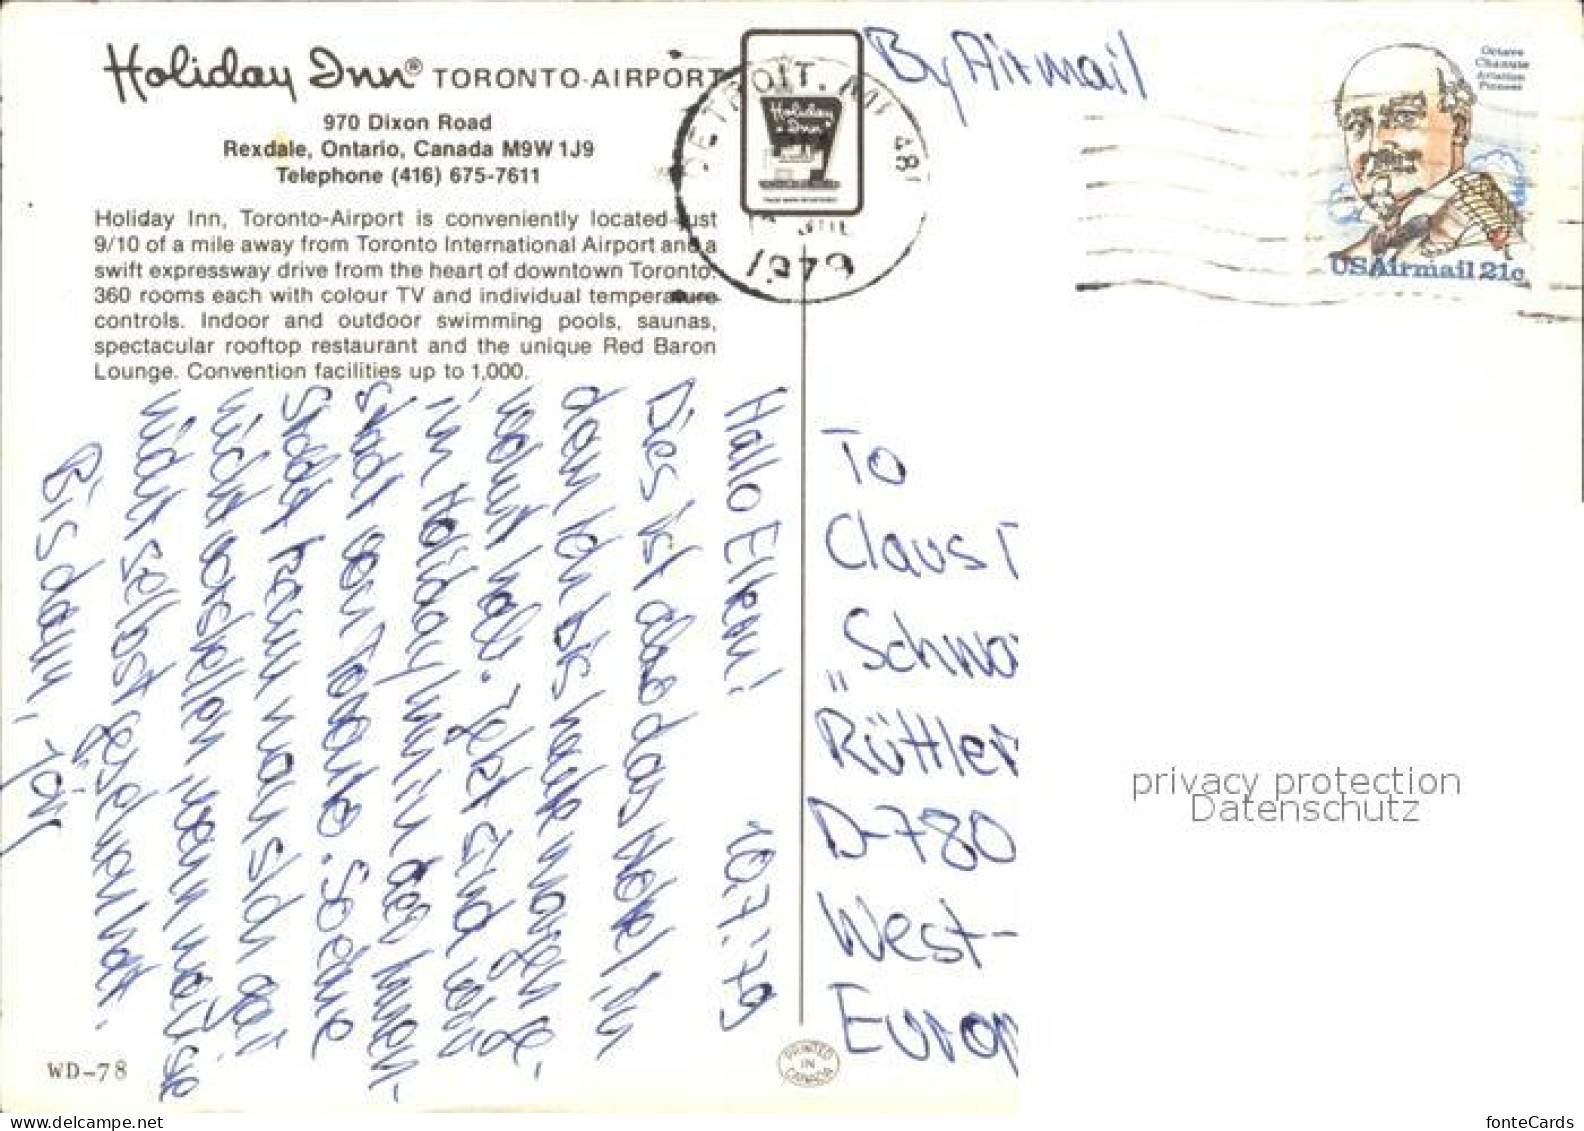 Holiday Inn® TORONTO-AIRPORT
970 Dixon Road
Rexdale, Ontario, Canada M9W 1J9
Telephone (416) 675-7611
Holiday Inn, Toronto-Airport is conveniently located just
9/10 of a mile away from Toronto International Airport and a
swift expressway drive from the heart of downtown Toronto.
360 rooms each with colour TV and individual temperature
controls. Indoor and outdoor swimming pools, saunas,
spectacular rooftop restaurant and the unique Red Baron
Lounge. Convention facilities up to 1,000.
Holiday
Inn
DETROIT, MI 48
1979
By Airmail
Octave
Chanute
Aviation
Pioneer
USAirmail 21c
Hallo Eltern! 10.7.'79
Dies ist also das Hotel in
dem ich bis heute morgen ge-
wohnt hab. Jetzt sind wir
im Holiday Inn in der Innen-
stadt von Toronto. So eine
Stadt kann man sich gar
nicht vorstellen, wenn man sie
nicht selbst gesehen hat.
Bis dann, Jörg
To
Claus
„Schwa
Rüttler
D-780
West-
Europ
PRINTED
IN
CANADA
WD-78
privacy protection
Datenschutz
www.delcampe.net
fonteCards